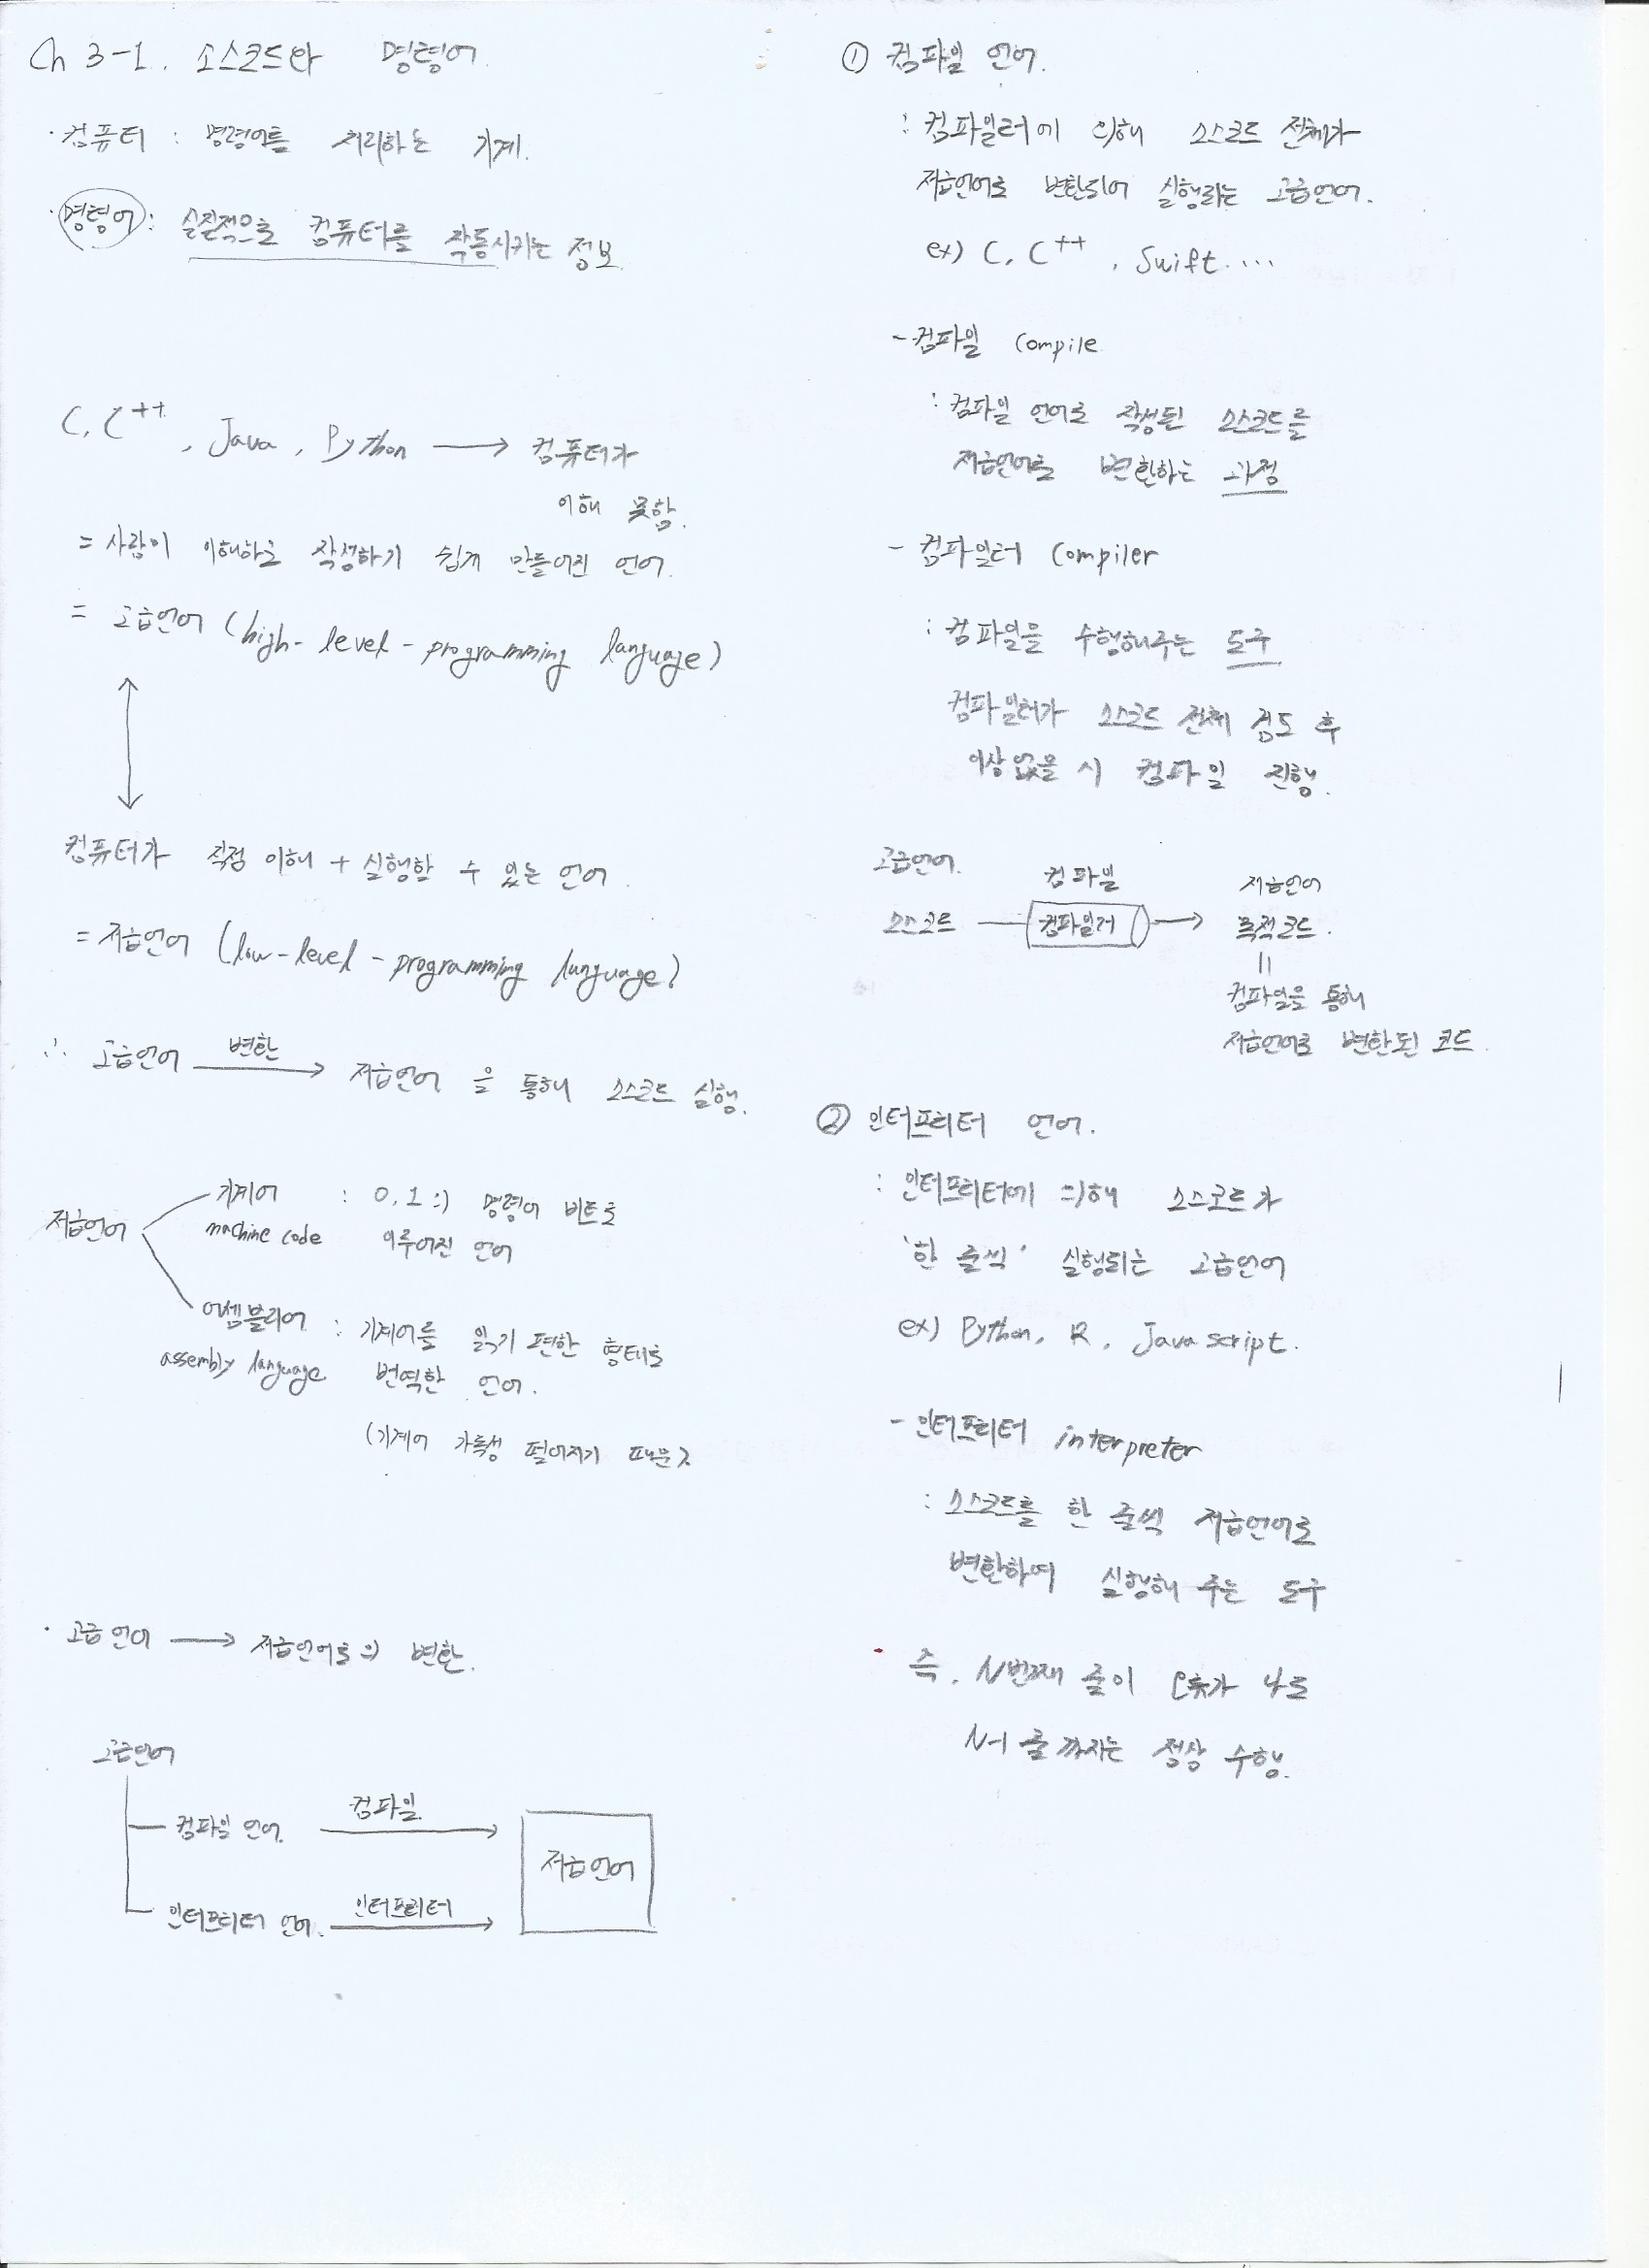 Ch 3-1. 소스코드와 명령어.
· 컴퓨터 : 명령어를 처리하는 기계.
· 명령어 : 실질적으로 컴퓨터를 작동시키는 정보
C, C++, Java, Python → 컴퓨터가
이해 못함.
= 사람이 이해하고 작성하기 쉽게 만들어진 언어.
= 고급언어 (high-level-programming language)
컴퓨터가 직접 이해 + 실행할 수 있는 언어.
= 저급언어 (low-level-programming language)
∴ 고급언어 변환 → 저급언어 을 통해 소스코드 실행.
저급언어
기계어 : 0, 1의 명령어 비트로
machine code 이루어진 언어
어셈블리어 : 기계어를 읽기 편한 형태로
assembly language 번역한 언어.
(기계어 가독성 떨어지기 때문)
· 고급언어 → 저급언어로의 변환.
고급언어
컴파일 언어 컴파일 →
저급언어
인터프리터 언어. 인터프리터 →
① 컴파일 언어.
: 컴파일러에 의해 소스코드 전체가
저급언어로 변환되어 실행되는 고급언어.
ex) C, C++, Swift ....
- 컴파일 compile
: 컴파일 언어로 작성된 소스코드를
저급언어로 변환하는 과정
- 컴파일러 compiler
: 컴파일을 수행해주는 도구
컴파일러가 소스코드 전체 검토 후
이상 없을 시 컴파일 진행.
고급언어. 컴파일 저급언어
소스코드 컴파일러 → 목적코드.
=
컴파일을 통해
저급언어로 변환된 코드.
② 인터프리터 언어.
: 인터프리터에 의해 소스코드가
'한 줄씩' 실행되는 고급언어
ex) Python, R, Javascript.
- 인터프리터 interpreter
: 소스코드를 한 줄씩 저급언어로
변환하여 실행해 주는 도구
즉, N번째 줄이 오류가 나도
N-1 줄 까지는 정상 수행.